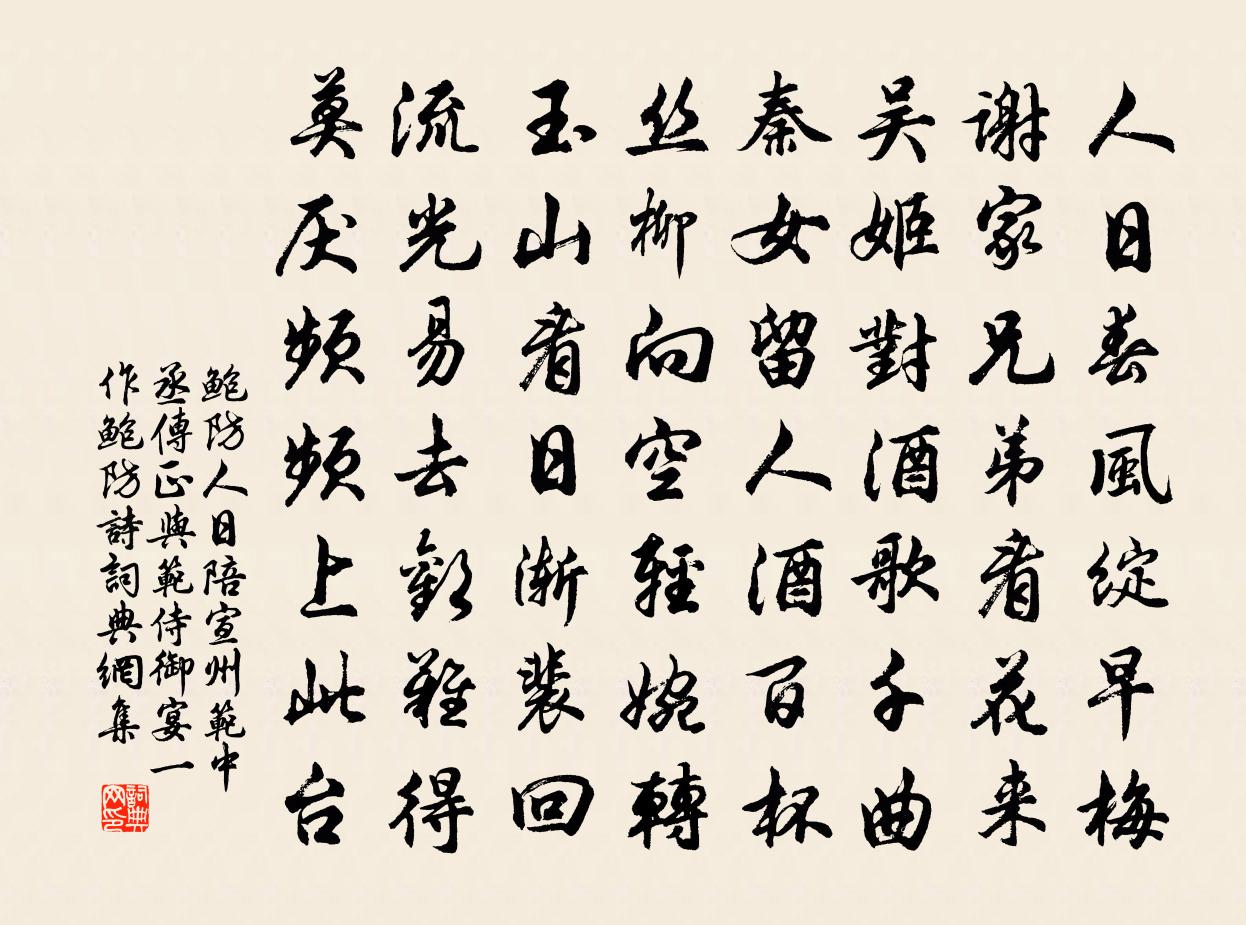 人日春風綻早梅
謝家兄弟看花来
吴姬對酒歌千曲
秦女留人酒百杯
丝柳向空輕婉轉
玉山看日漸裴回
流光易去歡難得
莫厌頻頻上此台
鲍防人日陪宣州範中
丞傳正與範侍御宴一
作鲍防詩詞典網集
詞典
网印